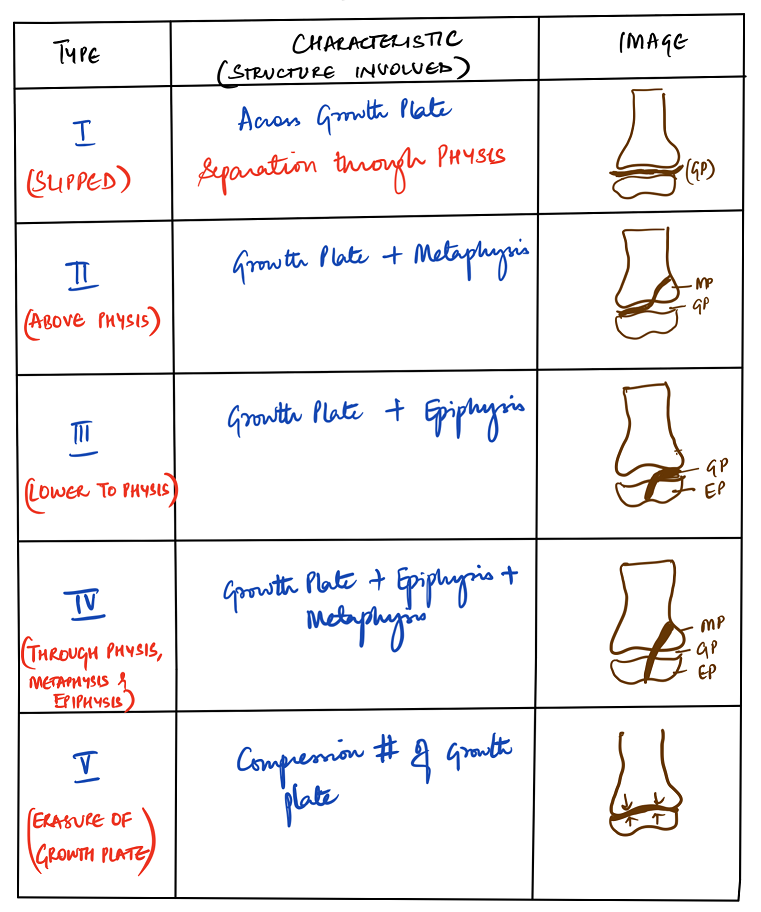 TYPE
CHARACTERISTIC
(STRUCTURE INVOLVED)
IMAGE
I
(SLIPPED)
Across Growth Plate
Separation through PHYSIS
(GP)
II
(ABOVE PHYSIS)
Growth Plate + Metaphysis
MP
GP
III
(LOWER TO PHYSIS)
Growth Plate + Epiphysis
GP
EP
IV
(THROUGH PHYSIS,
METAPHYSIS &
EPIPHYSIS)
Growth Plate + Epiphysis +
Metaphysis
MP
GP
EP
V
(ERASURE OF
GROWTH PLATE)
Compression # of Growth
plate